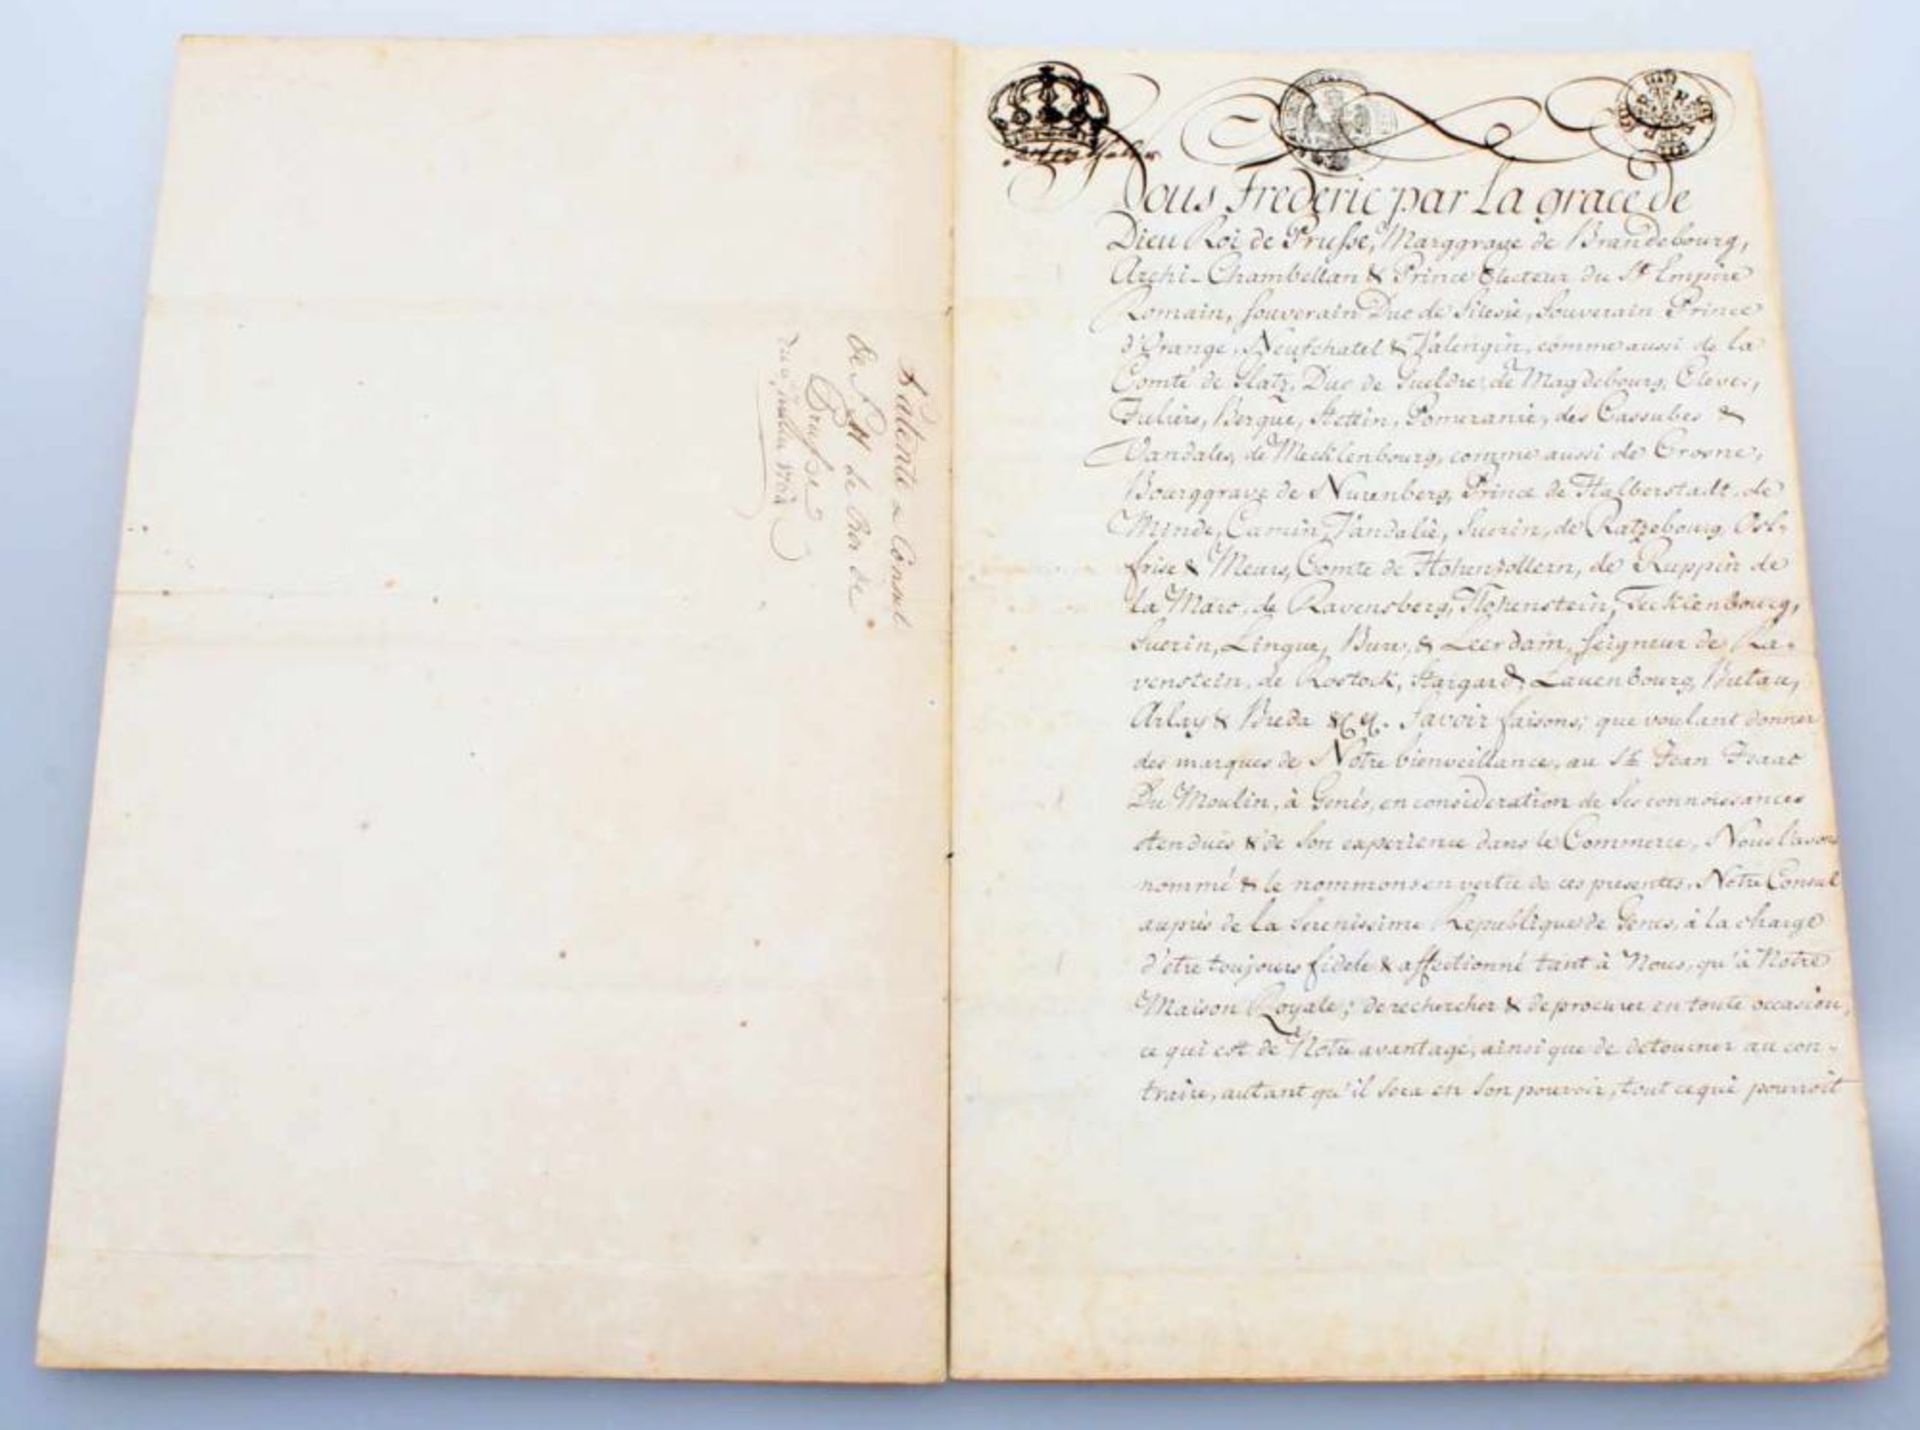 Patente de Consul
de S. M. le Roi de
Prusse
du 9 Juillet
Nous Frederic par la grace de
Dieu Roi de Prusse, Marggrave de Brandebourg,
Archi-Chambellan & Prince Electeur du St. Empire
Romain, Souverain Duc de Silesie, Souverain Prince
d'Orange, Neufchatel & Valengin, comme aussi de la
Comté de Glatz, Duc de Gueldre, de Magdebourg, Cleves,
Juliers, Bergue, Stettin, Pomeranie, des Cassubes &
Vandales, de Mecklenbourg, comme aussi de Crosne,
Bourggrave de Nurenberg, Prince de Halberstadt, de
Minde, Camin, Vandalie, Suerin, de Ratzebourg, Ost-
frise & Meurs, Comte de Hohenzollern, de Ruppin de
la Marc, de Ravensberg, Hohenstein, Tecklenbourg,
Suerin, Lingue, Bure, & Leerdam, Seigneur de Ra-
venstein, de Rostock, Stargard, Lauenbourg, Butau,
Arlay & Breda &c. Savoir faisons, que voulant donner
des marques de Notre bienveillance, au Sr. Jean Isaac
Du Moulin, à Genes, en consideration de Ses connoissances
etenduës & de Son experience dans le Commerce, Nous l'avons
nommé & le nommons en vertu de ces presentes, Notre Consul
auprés de la Serenissime Republique de Genes, à la charge
d'etre toujours fidele & affectionné tant à Nous, qu'à Notre
Maison Royale; de rechercher & de procurer en toute occasion,
ce qui est de Notre avantage, ainsi que de detourner au con-
traire, autant qu'il sera en Son pouvoir, tout ce qui pourroit